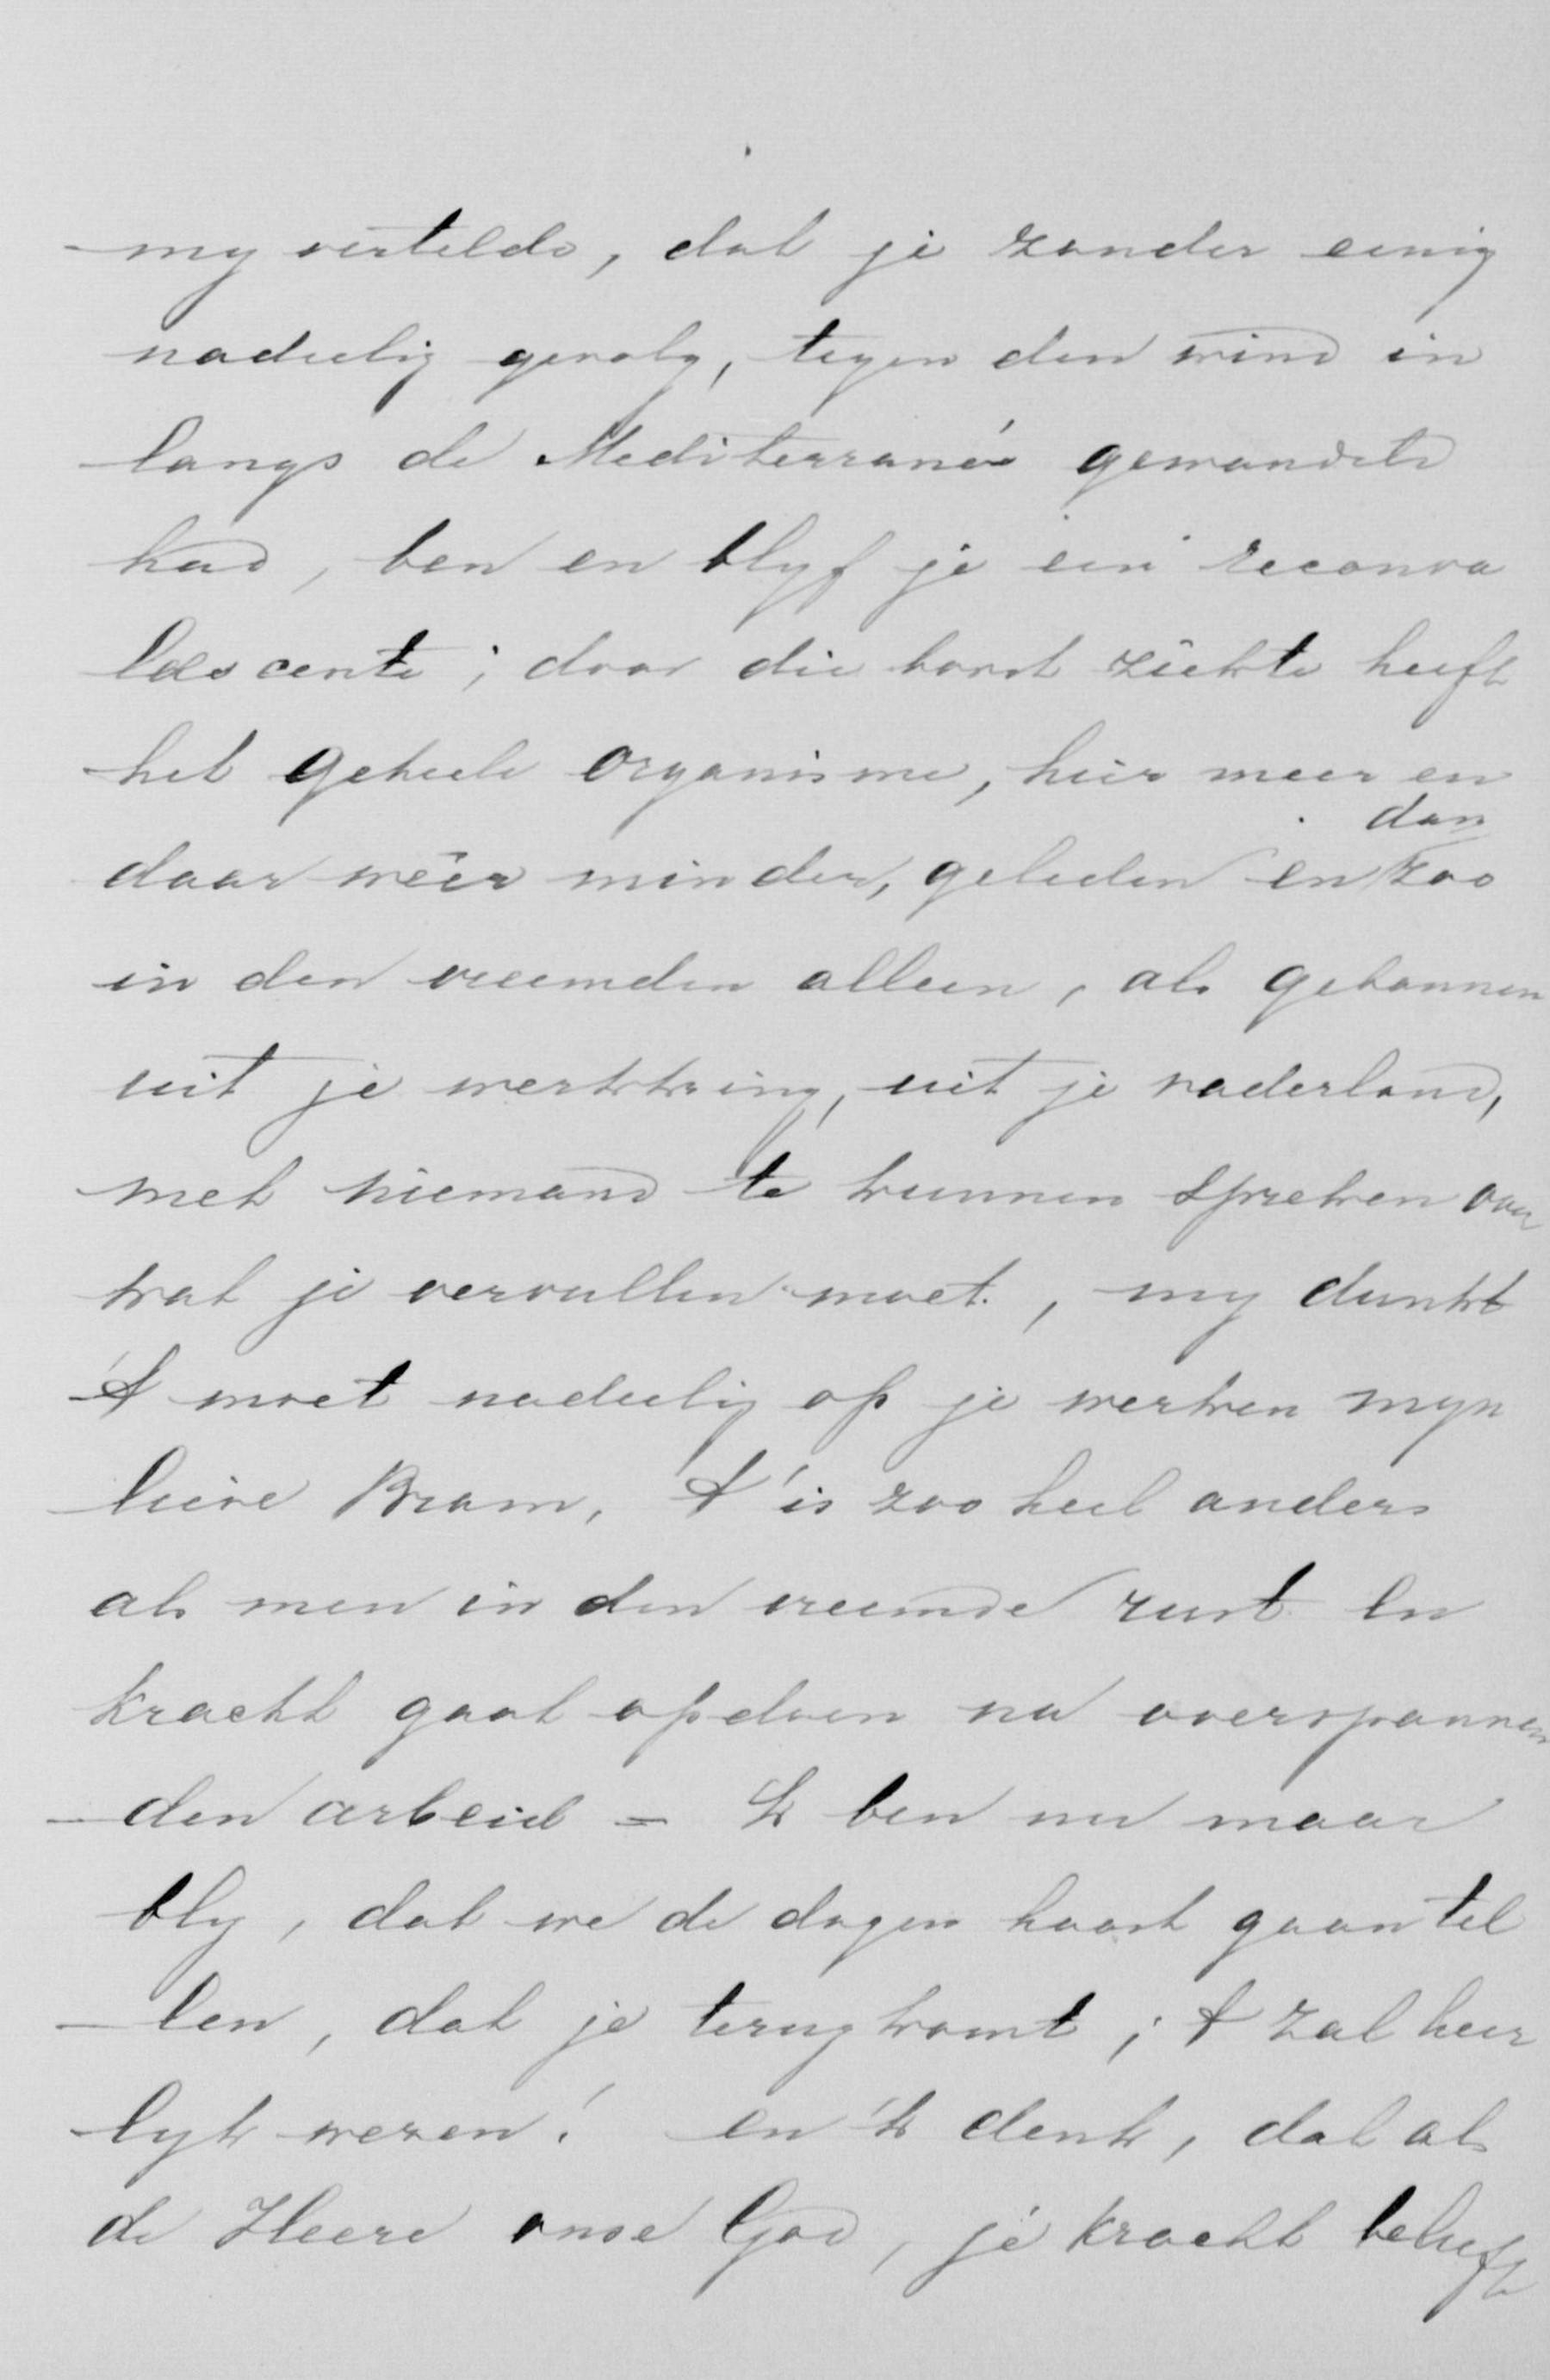 my vertelde, dat je zonder eenig
nadeelig gevolg, tegen den wind in
langs de Mediterrané gewandeld
had, ben en blyf je een reconva
lescente; door die borst ziekte heeft
het geheele organisme, hier meer en
daar wéér minder, geleden en dan zoo
in den vreemden alleen, als gebannen
uit je werkkring, uit je vaderland,
met niemand te kunnen spreken over
wat je vervullen moet, my dunkt
't moet nadeelig op je werken myn
lieve Bram, 't is zoo heel anders
als men in den vreemde rust en
kracht gaat opdoen na overspannen
den arbeid - 'k ben nu maar
bly, dat we de dagen haast gaan tel
len, dat je terug komt; 't zal heer
lyk wezen! en 'k denk, dat als
de Heere onse God, je kracht beheeft